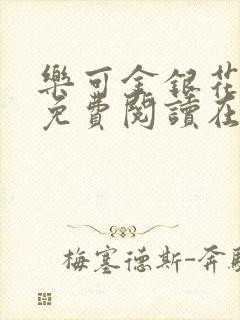 樂可金銀花
免費閱讀在
梅塞德斯-奔馳